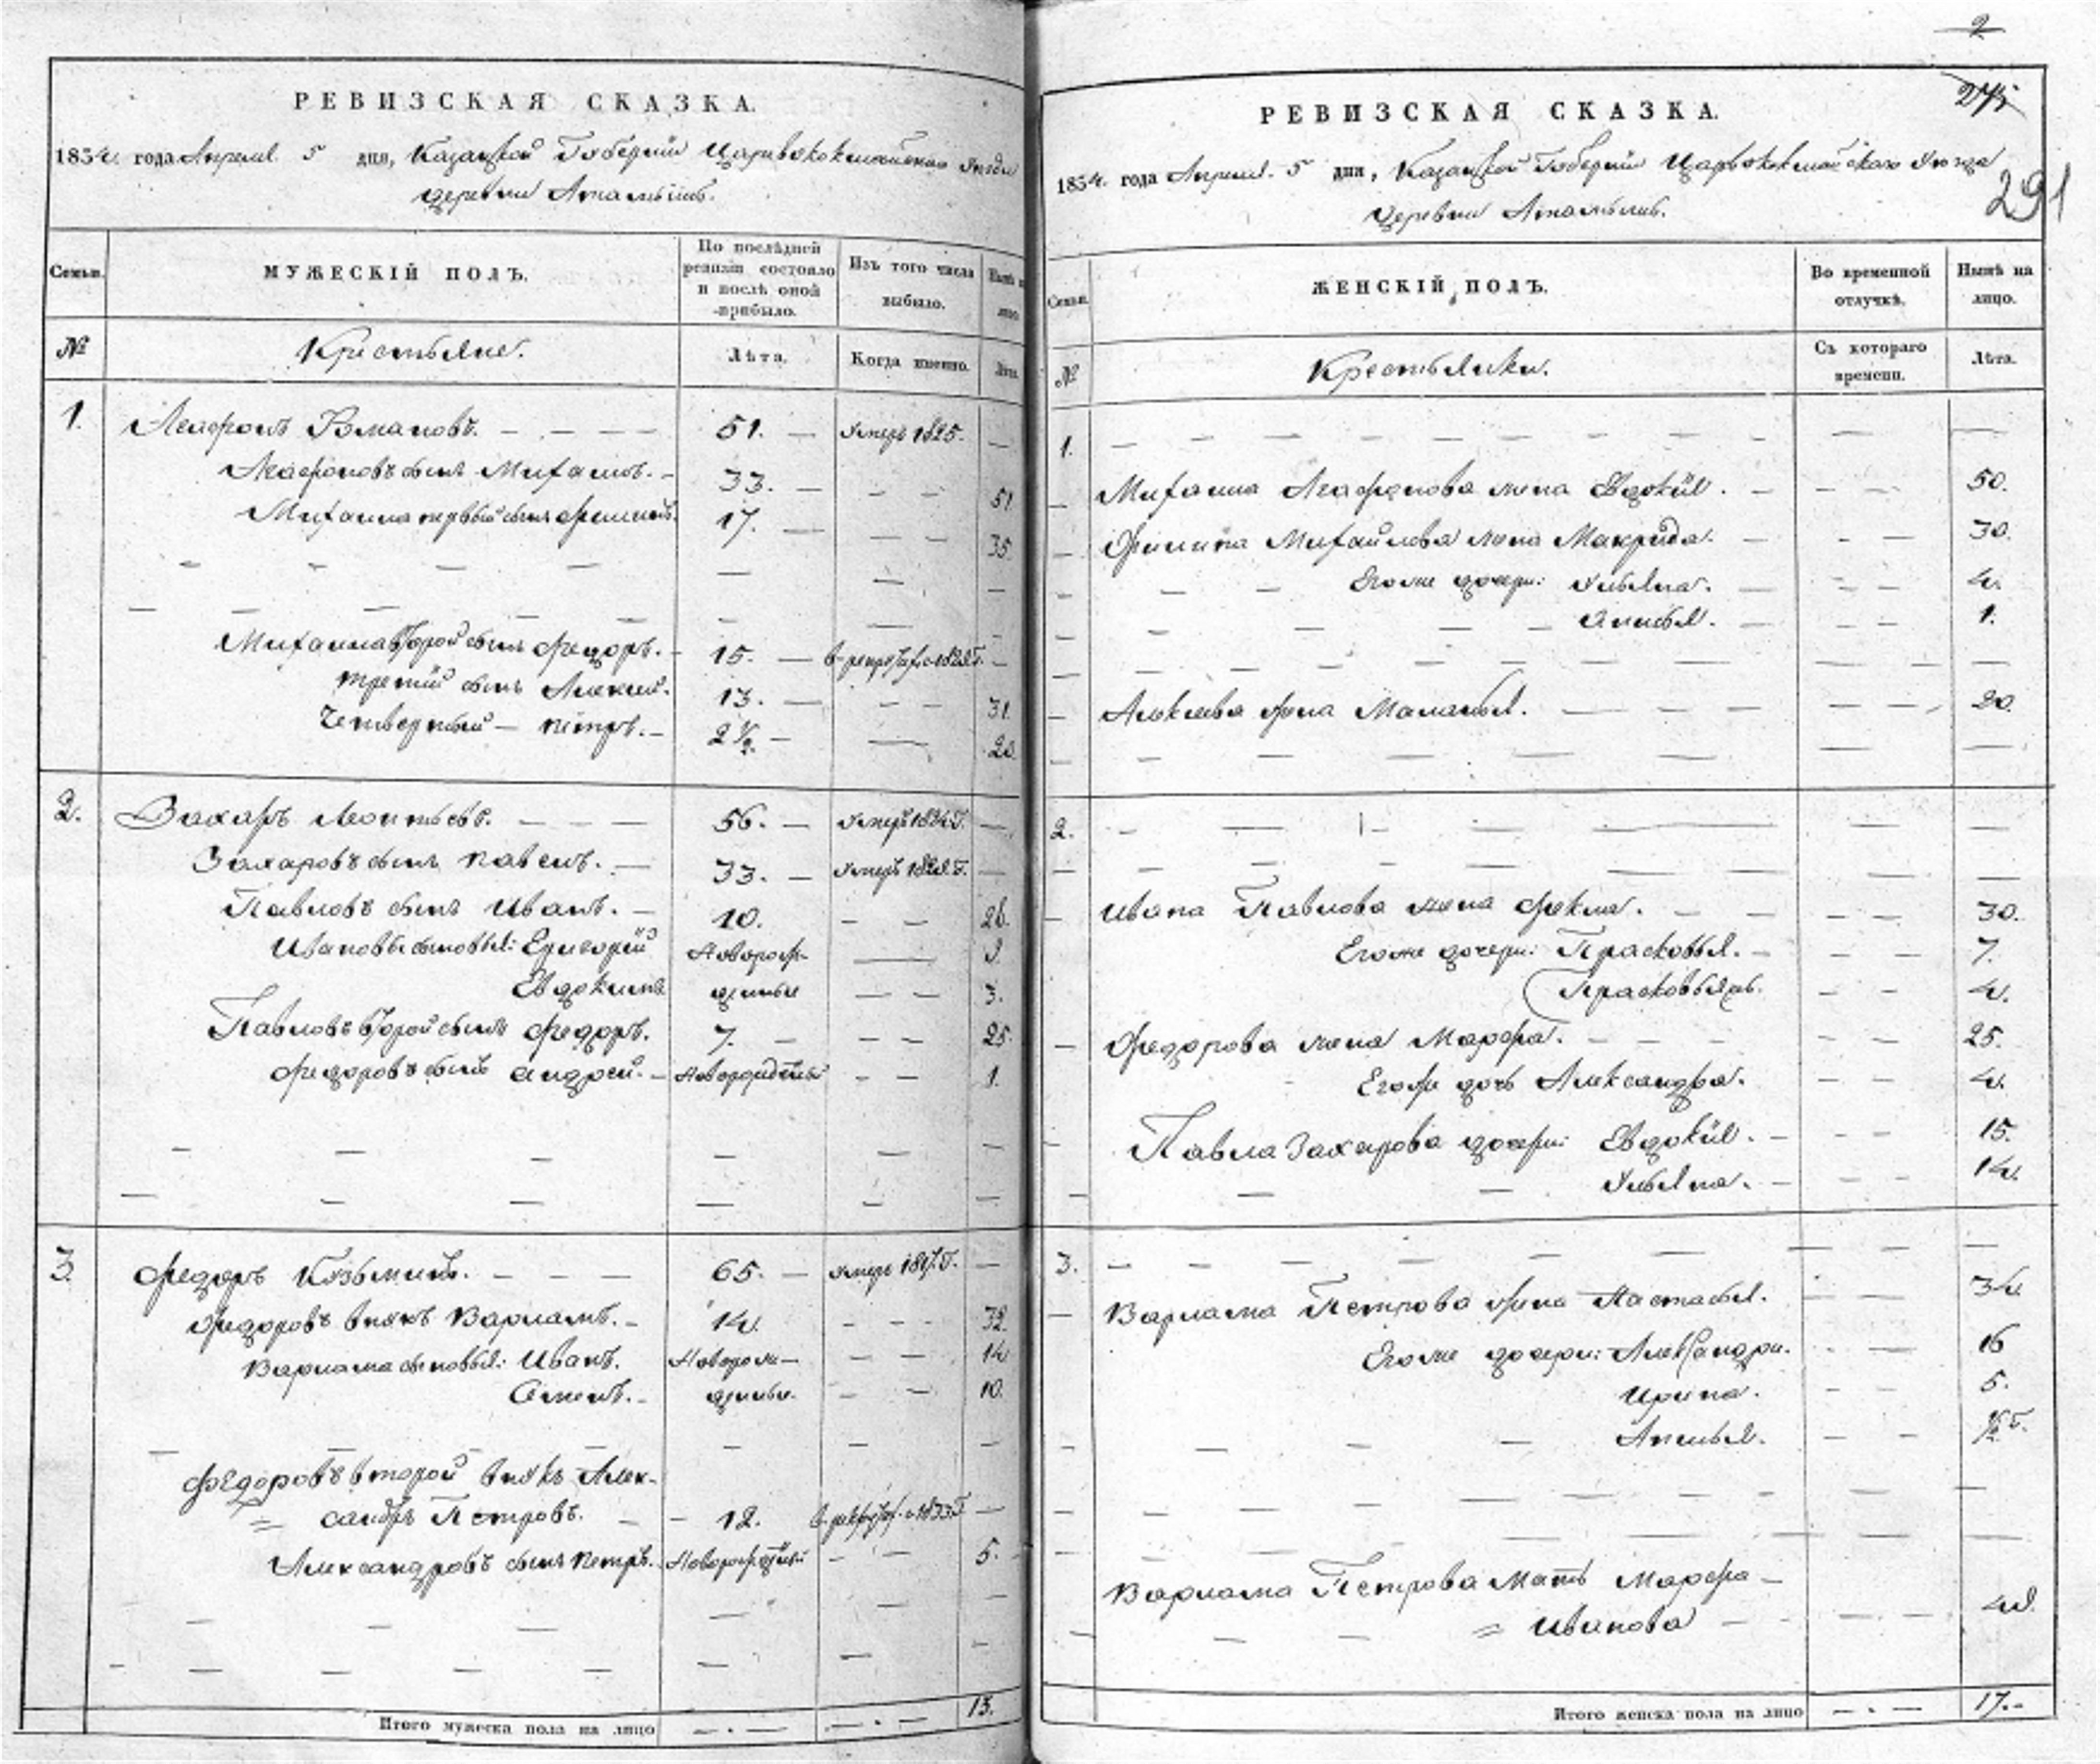 РЕВИЗСКАЯ СКАЗКА.
1834. года Апреля 5 дня, Казанской Губернии Царевококшайскаго Уезда
деревни
Семьи.
МУЖЕСКІЙ ПОЛЪ.
По послѣдней ревизіи состояло и послѣ оной прибыло.
Изъ того числа выбыло.
Нынѣ на лицо.
№
Крестьяне.
Лѣта.
Когда именно.
Лѣта.
1.
Агафонъ Романовъ. 51. Умеръ 1825.
Агафоновъ сынъ Михаилъ. 33. 51
Михаила первый сынъ Филипъ. 17. 35.
Михаила второй сынъ Федоръ. 15.
третий сынъ Алексей. 13. 31.
Четвертый Петръ. 2 1/2. 20.
2.
Захаръ Леонтьевъ. 56. Умеръ 1834 г.
Захаровъ сынъ Павелъ. 33. Умеръ
Павловъ сынъ Иванъ. 10. 28.
Ивановы сыновья: Григорий Новорож-
Евдокимъ денные 3.
Павловъ второй сынъ Федоръ. 7. 25.
Федоровъ сынъ Андрей. Новорожденный 1.
3.
Федоръ Кузьминъ. 65. Умеръ
Федоровъ внукъ Варламъ. 14. 32.
Варлама сыновья: Иванъ. Новорож- 14
Семенъ. денные. 10.
Федоровъ второй внукъ Алек-
сандръ Петровъ. 12. 1833 г
Александровъ сынъ Петръ. Новорожденный 5.
Итого мужеска пола на лицо 13.
2
291
РЕВИЗСКАЯ СКАЗКА.
1834. года Апреля. 5 дня, Казанской Губернии Царевококшайскаго Уезда
деревни
Семьи.
ЖЕНСКІЙ ПОЛЪ.
Во временной отлучкѣ.
Нынѣ на лицо.
№
Крестьянки.
Съ котораго времени.
Лѣта.
1.
Михаила Агафонова жена Евдокія. 50.
Филипа Михайлова жена Макрида. 30.
Его же дочери: Ульяна. 4.
1.
Алексеева жена Маланья. 20.
2.
Ивана Павлова жена Фекла. 30.
Его же дочери: Прасковья. 7.
Прасковья 4.
Федорова жена Марфа. 25.
Его же дочь Александра. 4.
Павла Захарова дочери: Евдокія. 15.
Ульяна. 14.
3.
Варлама Петрова жена Настасья. 34.
Его же дочери: Александра. 16
Ирина. 5.
Варлама Петрова мать Марфа
Иванова
Итого женска пола на лицо 17.